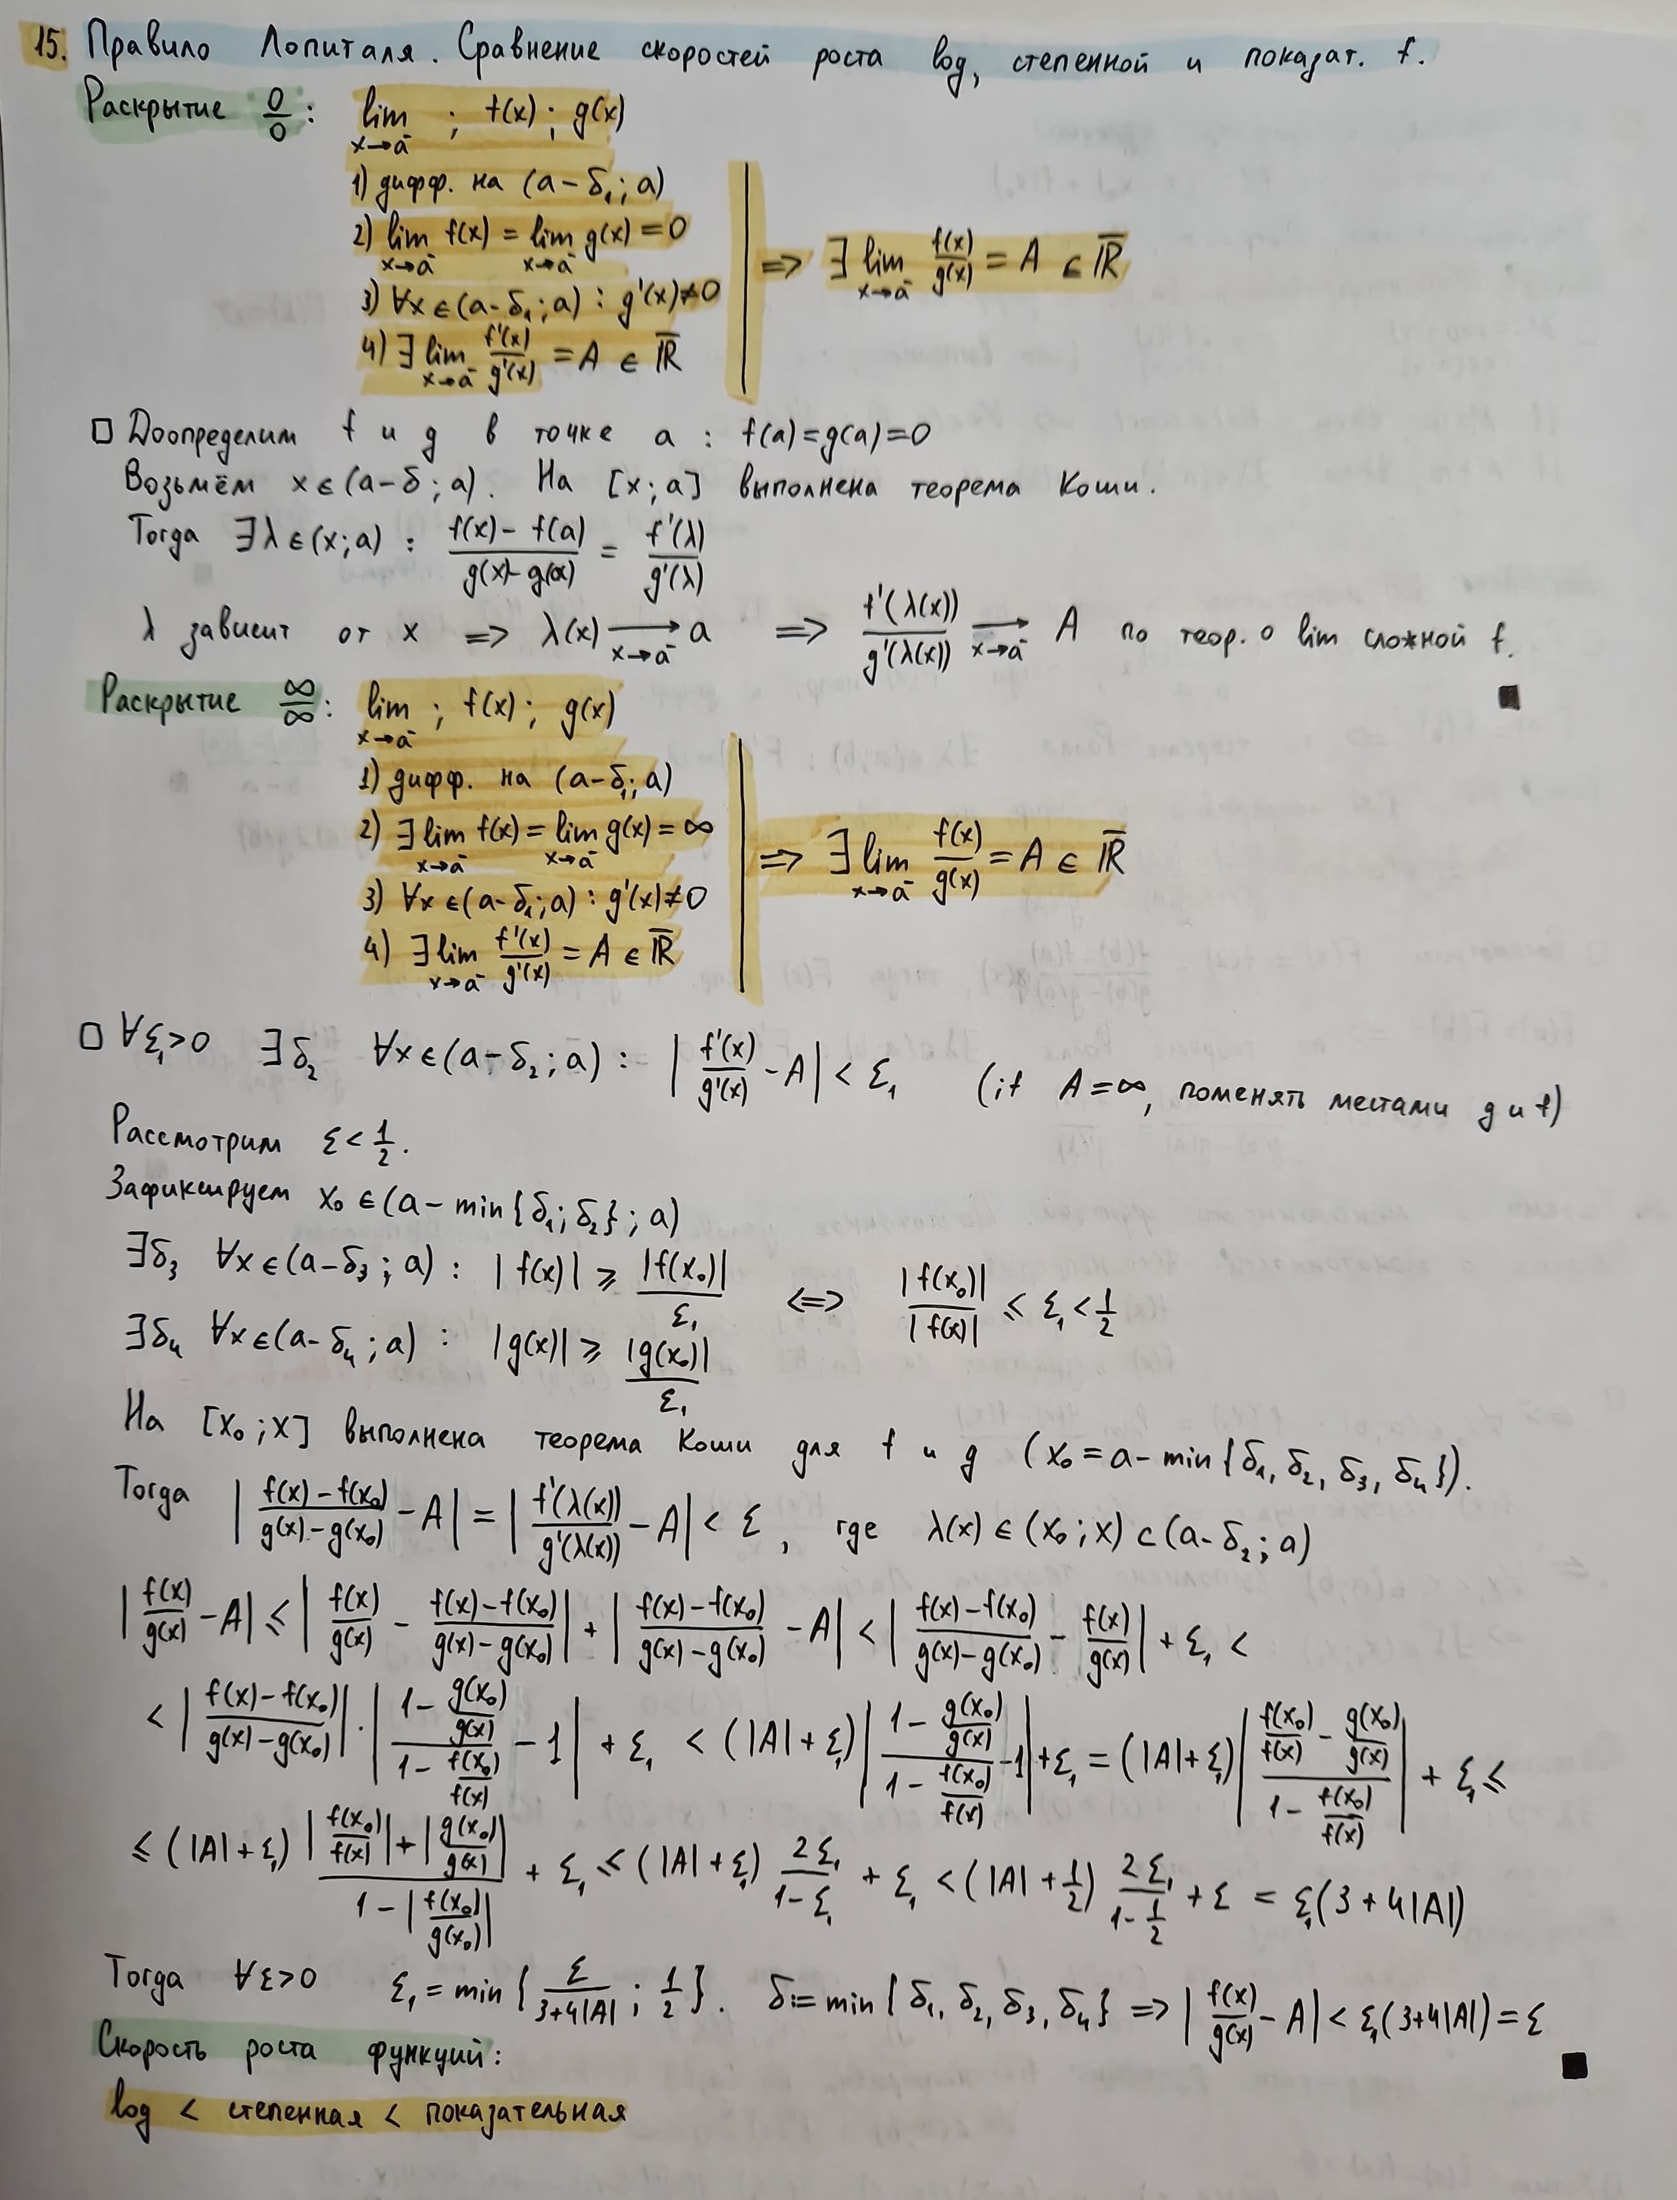 15. Правило Лопиталя. Сравнение скоростей роста log, степенной и показат. f.
Раскрытие 0/0 : lim x→a⁻ ; f(x) ; g(x)
1) дифф. на (a-δ₁; a)
2) lim x→a⁻ f(x) = lim x→a⁻ g(x) = 0
3) ∀x ∈ (a-δ₁; a) : g'(x)≠0
4) ∃ lim x→a⁻ f'(x)/g'(x) = A ∈ R̅
=> ∃ lim x→a⁻ f(x)/g(x) = A ∈ R̅
□ Доопределим f и g в точке a : f(a)=g(a)=0
Возьмём x∈(a-δ; a). На [x; a] выполнена теорема Коши.
Тогда ∃λ∈(x; a) : (f(x)-f(a))/(g(x)-g(a)) = f'(λ)/g'(λ)
λ зависит от x => λ(x) → x→a⁻ a => f'(λ(x))/g'(λ(x)) → x→a⁻ A по теор. о lim сложной f. ■
Раскрытие ∞/∞ : lim x→a⁻ ; f(x) ; g(x)
1) дифф. на (a-δ₁; a)
2) ∃ lim x→a⁻ f(x) = lim x→a⁻ g(x) = ∞
3) ∀x ∈(a-δ₁; a) : g'(x)≠0
4) ∃ lim x→a⁻ f'(x)/g'(x) = A ∈ R̅
=> ∃ lim x→a⁻ f(x)/g(x) = A ∈ R̅
□ ∀ε₁>0 ∃δ₂ ∀x∈(a-δ₂; a) : |f'(x)/g'(x) - A| < ε₁ (if A=∞, поменять местами g и f)
Рассмотрим ε < 1/2.
Зафиксируем x₀ ∈(a - min{δ₁; δ₂}; a)
∃δ₃ ∀x∈(a-δ₃; a) : |f(x)| ⩾ |f(x₀)|/ε₁ <=> |f(x₀)|/|f(x)| ⩽ ε₁ < 1/2
∃δ₄ ∀x∈(a-δ₄; a) : |g(x)| ⩾ |g(x₀)|/ε₁
На [x₀; x] выполнена теорема Коши для f и g (x₀ = a - min{δ₁, δ₂, δ₃, δ₄}).
Тогда |(f(x)-f(x₀))/(g(x)-g(x₀)) - A| = |f'(λ(x))/g'(λ(x)) - A| < ε, где λ(x) ∈ (x₀; x) ⊂ (a-δ₂; a)
|f(x)/g(x) - A| ⩽ |f(x)/g(x) - (f(x)-f(x₀))/(g(x)-g(x₀))| + |(f(x)-f(x₀))/(g(x)-g(x₀)) - A| < |(f(x)-f(x₀))/(g(x)-g(x₀)) - f(x)/g(x)| + ε₁ <
< |(f(x)-f(x₀))/(g(x)-g(x₀))| · |(1 - g(x₀)/g(x))/(1 - f(x₀)/f(x)) - 1| + ε₁ < (|A|+ε₁)|(1 - g(x₀)/g(x))/(1 - f(x₀)/f(x)) - 1| + ε₁ = (|A|+ε₁)|(f(x₀)/f(x) - g(x₀)/g(x))/(1 - f(x₀)/f(x))| + ε₁ ⩽
⩽ (|A|+ε₁) (|f(x₀)/f(x)| + |g(x₀)/g(x)|)/(1 - |f(x₀)/g(x₀)|) + ε₁ ⩽ (|A|+ε₁) 2ε₁/(1-ε₁) + ε₁ < (|A| + 1/2) 2ε₁/(1-1/2) + ε = ε₁(3+4|A|)
Тогда ∀ε>0 ε₁ = min{ε/(3+4|A|) ; 1/2}. δ:= min{δ₁, δ₂, δ₃, δ₄} => |f(x)/g(x) - A| < ε₁(3+4|A|) = ε ■
Скорость роста функций:
log < степенная < показательная